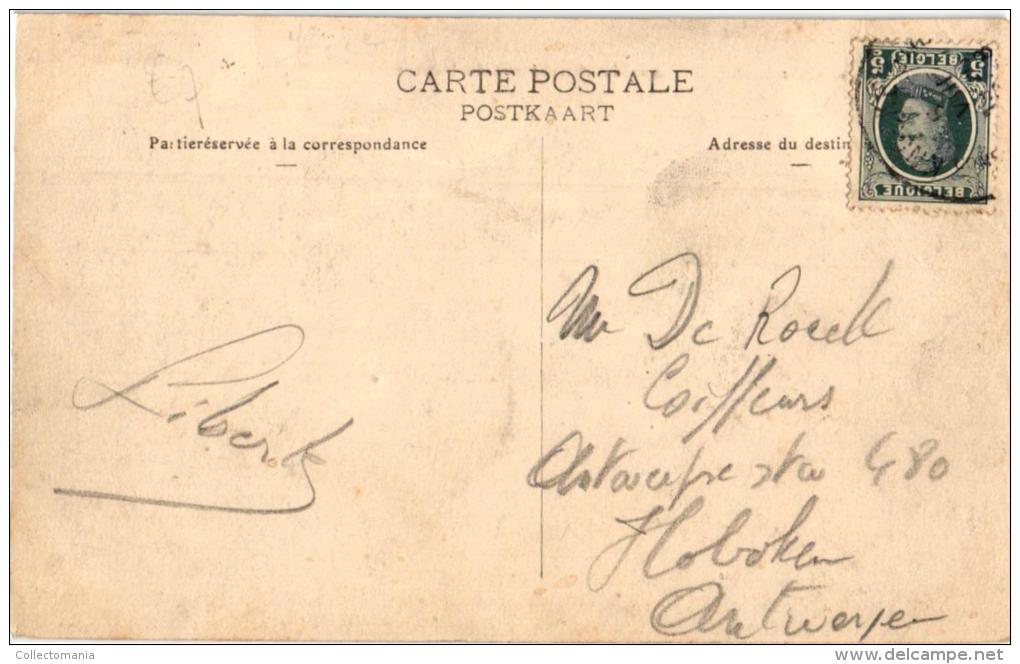 CARTE POSTALE
POSTKAART
Partie réservée à la correspondance
Adresse du destin
5 BELGIE 5
BELGIQUE
E-7
Libert
Mr De Roeck
Coiffeurs
480
Hoboken
Antwerpen
Collectomania
delcampe.net